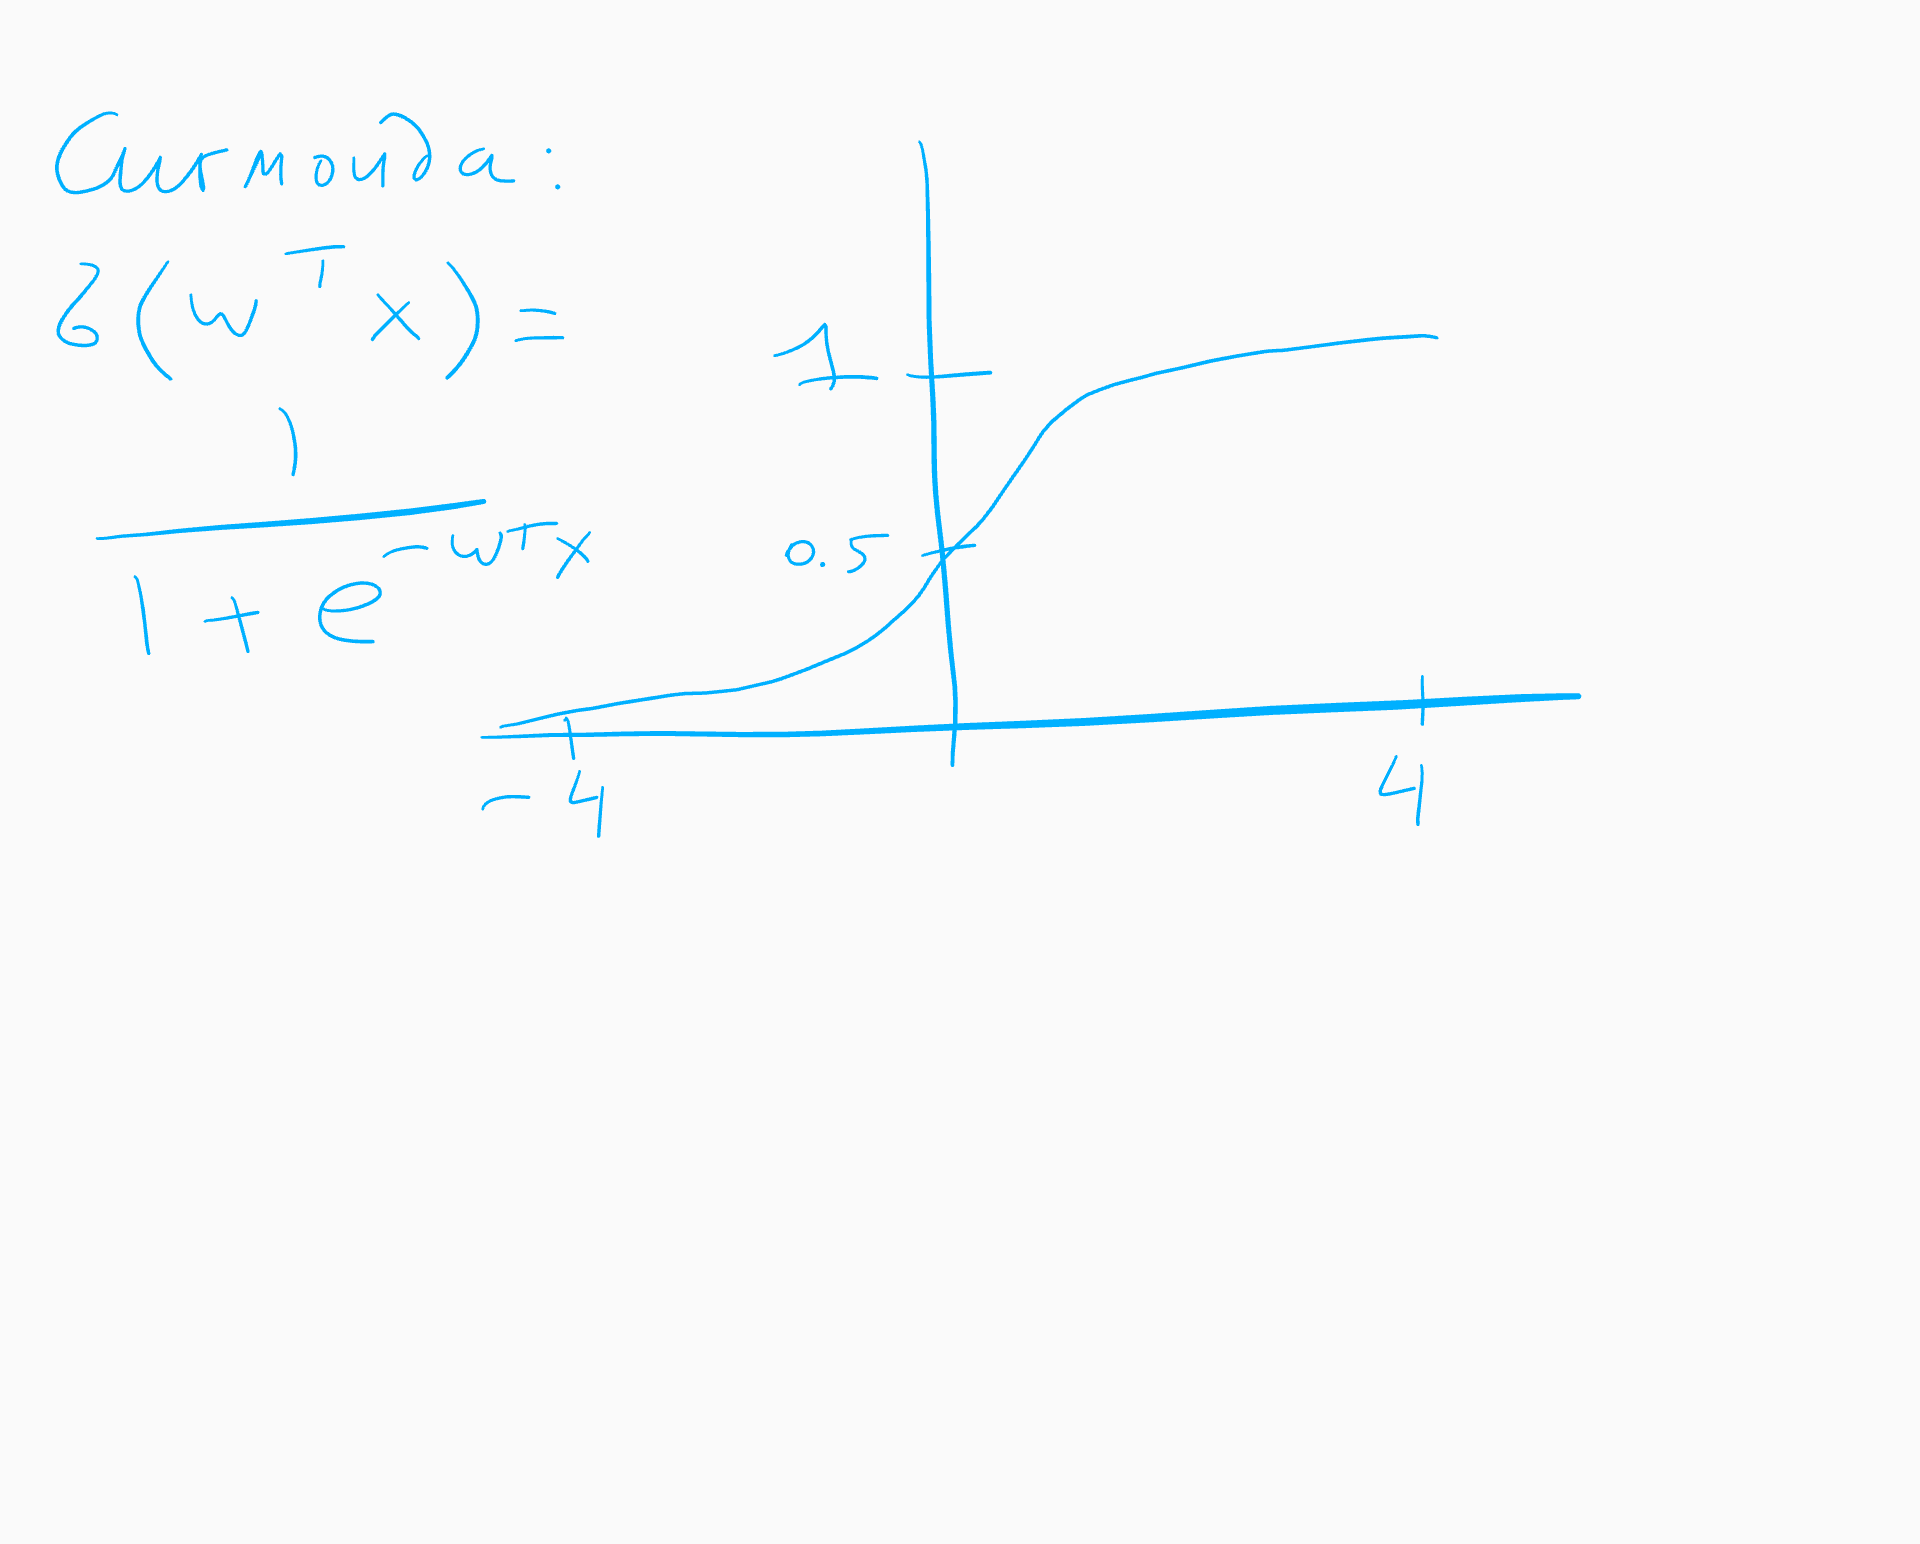 Сигмоида:
σ(w^T x) =
1
1 + e^-w^T x
1
0.5
-4
4